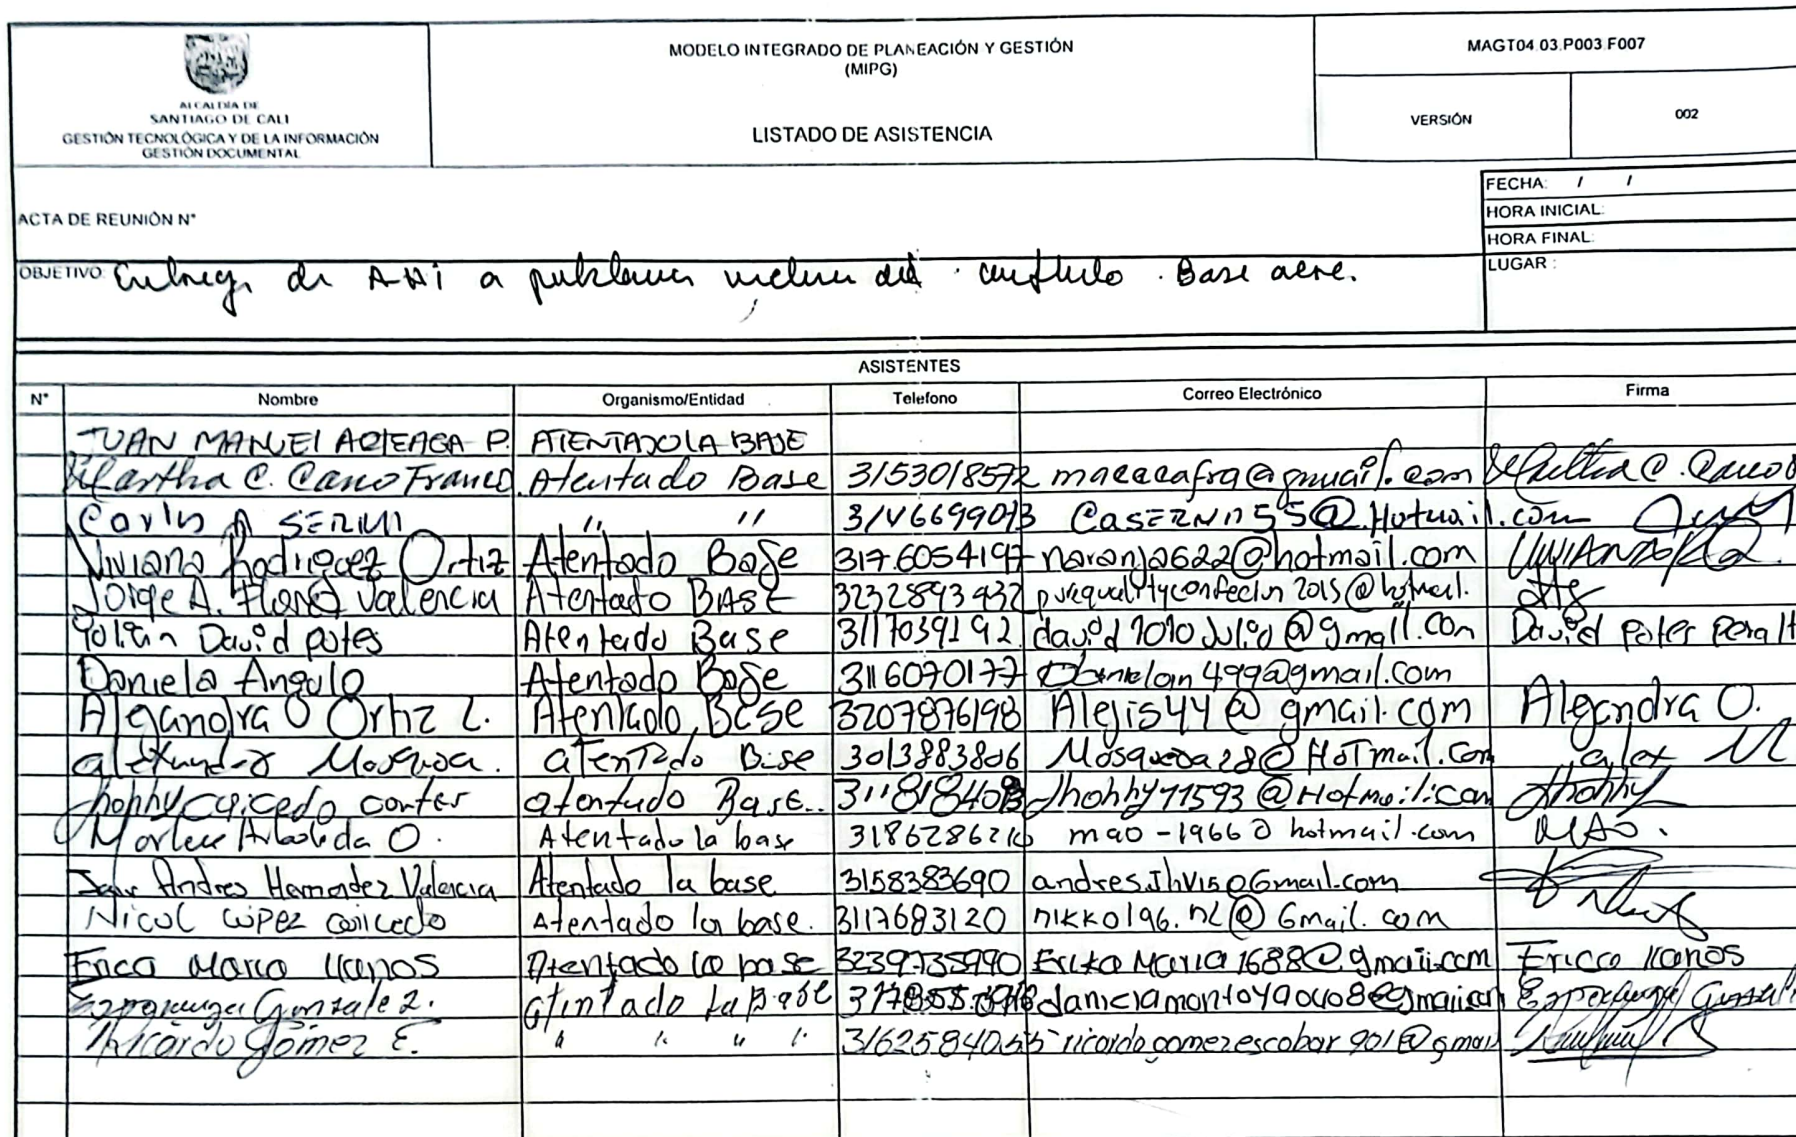 ALCALDÍA DE
SANTIAGO DE CALI
GESTIÓN TECNOLÓGICA Y DE LA INFORMACIÓN
GESTIÓN DOCUMENTAL
MODELO INTEGRADO DE PLANEACIÓN Y GESTIÓN
(MIPG)
LISTADO DE ASISTENCIA
MAGT04.03.P003.F007
VERSIÓN 002
ACTA DE REUNIÓN N°
FECHA: / /
HORA INICIAL:
HORA FINAL:
LUGAR :
OBJETIVO: Entrega de AHI a del conflicto . Base aere.
ASISTENTES
N° Nombre Organismo/Entidad Telefono Correo Electrónico Firma
JUAN MANUEL ARTEAGA P. ATENTADO LA BASE
Martha C. Cano Franco. Atentado Base 3153018572 macacafra@gmail.com Martha C. Cano
Carlos A " " 3146699013 @Hotmail.com
Viviana Rodriguez Ortiz Atentado Base 317.6054197 naranja622@hotmail.com
Jorge A. Florez Valencia Atentado BASE 3232893432 purequalityconfeccin2015@hotmail.
David potes Atentado Base 3117039192 david1010Julio@gmail.com David potes Peralt
Daniela Angulo Atentado Base 3116070177 499@gmail.com
Alejandra O Ortiz L. Atentado Base 3207876198 Alejis44@gmail.com Alejandra O.
alexander Mosquera. aTenTado Base 3013883806 Mosquera28@HoTmail.Com alex M
Jhohhy caicedo cortes atentado Base.. Jhohhy11593@Hotmail.com Jhohhy
Marlene Arboleda O. Atentado la base mao-1966@hotmail.com MAO.
Andres Hernandez Valencia Atentado la base 3158383690 andres.Jhv15@Gmail.com
Nicol LópEz caicedo Atentado la base. 3117683120 nikko196.nl@Gmail.com
Erica Maria llanos Atentado la base 3239735990 Erika Maria1688@gmail.com Erica llanos
Esperanza Gonzalez. Atentado La Base danielamontoya0408@gmail.com Esperanza
Ricardo Gómez E. " " " " 3162584055 ricardogomezescobar901@gmai